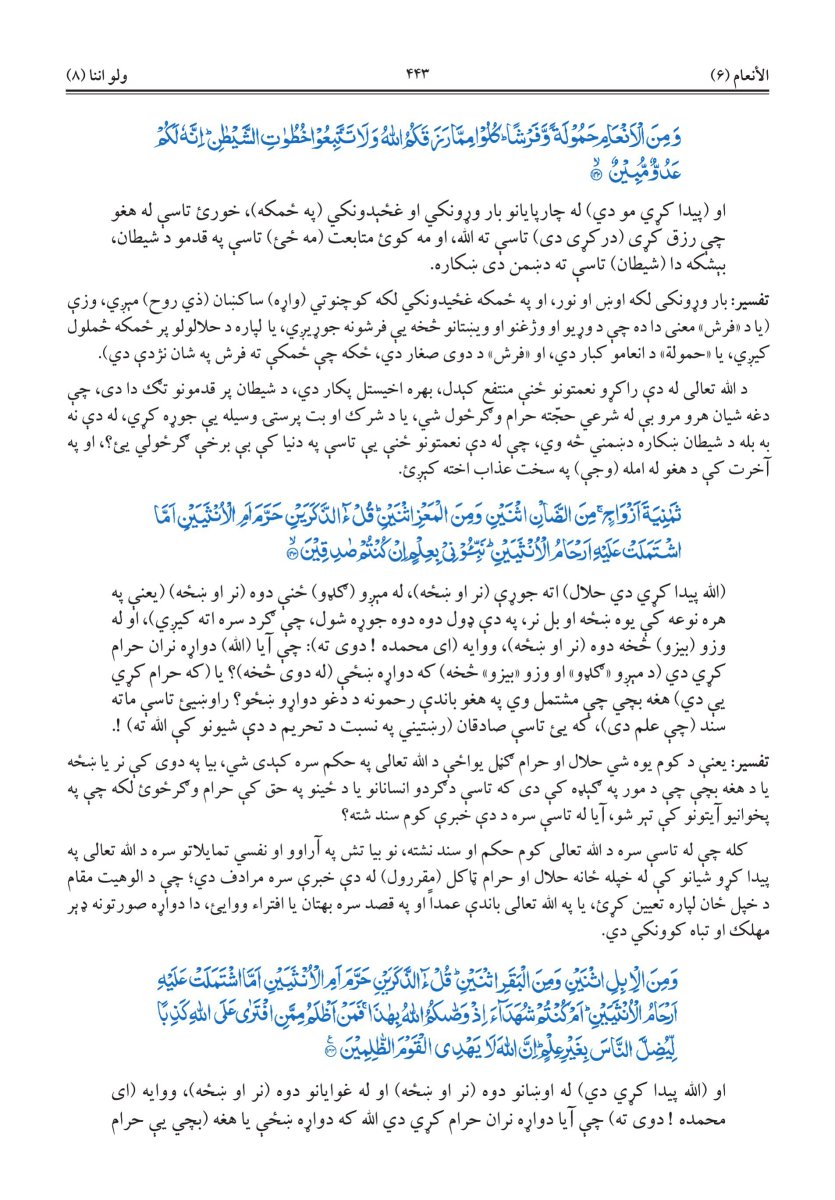 الأنعام (۶) ۴۴۳ ولو اننا (۸)
وَمِنَ الْاَنْعَامِ حَمُوْلَةً وَّفَرْشًا ؕ كُلُوْا مِمَّا رَزَقَكُمُ اللّٰهُ وَلَا تَتَّبِعُوْا خُطُوٰتِ الشَّيْطٰنِ ؕ اِنَّهٗ لَكُمْ
عَدُوٌّ مُّبِيْنٌ ۙ
او (پيدا کړي مو دي) له چارپايانو بار وړونکي او غځېدونکي (په ځمکه)، خورئ تاسې له هغو
چې رزق کړی (درکړی دی) تاسې ته الله، او مه کوئ متابعت (مه ځئ) تاسې په قدمو د شيطان،
بېشکه دا (شيطان) تاسې ته دښمن دی ښکاره.
تفسير: بار وړونکی لکه اوښ او نور، او په ځمکه غځېدونکي لکه کوچنوټي (واړه) ساکښان (ذي روح) مېږي، وزې
(يا د «فرش» معنی دا ده چې د وړيو او وژغنو او ويښتانو څخه يې فرشونه جوړيږي، يا لپاره د حلالولو پر ځمکه څملول
کيږي، يا «حمولة» د انعامو کبار دي، او «فرش» د دوی صغار دي، ځکه چې ځمکې ته فرش په شان نژدې دي).
د الله تعالی له دې راکړو نعمتونو ځنې منتفع کېدل، بهره اخيستل پکار دي، د شيطان پر قدمونو تګ دا دی، چې
دغه شيان هرو مرو بې له شرعي حجّته حرام وګرځول شي، يا د شرک او بت پرستۍ وسيله يې جوړه کړي، له دې نه
به بله د شيطان ښکاره دښمني څه وي، چې له دې نعمتونو ځنې يې تاسې په دنيا کې بې برخې ګرځولي يئ؟، او په
آخرت کې د هغو له امله (وجې) په سخت عذاب اخته کېږئ.
ثَمٰنِيَةَ اَزْوَاجٍ ۚ مِنَ الضَّاْنِ اثْنَيْنِ وَمِنَ الْمَعْزِ اثْنَيْنِ ؕ قُلْ ءٰٓالذَّكَرَيْنِ حَرَّمَ اَمِ الْاُنْثَيَيْنِ اَمَّا
اشْتَمَلَتْ عَلَيْهِ اَرْحَامُ الْاُنْثَيَيْنِ ؕ نَبِّـُٔوْنِیْ بِعِلْمٍ اِنْ كُنْتُمْ صٰدِقِيْنَ ۙ
(الله پيدا کړي دي حلال) اته جوړې (نر او ښځه)، له مېږو (ګډو) ځنې دوه (نر او ښځه) (يعنې په
هره نوعه کې يوه ښځه او بل نر، په دې ډول دوه دوه جوړه شول، چې ګرد سره اته کيږي)، او له
وزو (بيزو) څخه دوه (نر او ښځه)، ووايه (ای محمده ! دوی ته): چې آيا (الله) دواړه نران حرام
کړي دي (د مېږو «ګډو» او وزو «بيزو» څخه) که دواړه ښځې (له دوی څخه)؟ يا (که حرام کړي
يې دي) هغه بچي چې مشتمل وي په هغو باندې رحمونه د دغو دواړو ښځو؟ راوښيئ تاسې ماته
سند (چې علم دی)، که يئ تاسې صادقان (رښتيني په نسبت د تحريم د دې شيونو کې الله ته) !.
تفسير: يعنې د کوم يوه شي حلال او حرام ګڼل يواځې د الله تعالی په حکم سره کېدی شي، بيا په دوی کې نر يا ښځه
يا د هغه بچې چې د مور په ګېډه کې دی که تاسې دګردو انسانانو يا د ځينو په حق کې حرام وګرځوئ لکه چې په
پخوانيو آيتونو کې تېر شو، آيا له تاسې سره د دې خبرې کوم سند شته؟
کله چې له تاسې سره د الله تعالی کوم حکم او سند نشته، نو بيا تش په آراوو او نفسي تمايلاتو سره د الله تعالی په
پيدا کړو شيانو کې له خپله ځانه حلال او حرام ټاکل (مقررول) له دې خبرې سره مرادف دي؛ چې د الوهيت مقام
د خپل ځان لپاره تعيين کړئ، يا په الله تعالی باندې عمداً او په قصد سره بهتان يا افتراء ووايئ، دا دواړه صورتونه ډېر
مهلک او تباه کوونکي دي.
وَمِنَ الْاِبِلِ اثْنَيْنِ وَمِنَ الْبَقَرِ اثْنَيْنِ ؕ قُلْ ءٰٓالذَّكَرَيْنِ حَرَّمَ اَمِ الْاُنْثَيَيْنِ اَمَّا اشْتَمَلَتْ عَلَيْهِ
اَرْحَامُ الْاُنْثَيَيْنِ ؕ اَمْ كُنْتُمْ شُهَدَآءَ اِذْ وَصّٰىكُمُ اللّٰهُ بِهٰذَا ۚ فَمَنْ اَظْلَمُ مِمَّنِ افْتَرٰى عَلَى اللّٰهِ كَذِبًا
لِّيُضِلَّ النَّاسَ بِغَيْرِ عِلْمٍ ؕ اِنَّ اللّٰهَ لَا يَهْدِى الْقَوْمَ الظّٰلِمِيْنَ
او (الله پيدا کړي دي) له اوښانو دوه (نر او ښځه) او له غوايانو دوه (نر او ښځه)، ووايه (ای
محمده ! دوی ته) چې آيا دواړه نران حرام کړي دي الله که دواړه ښځې يا هغه (بچي يې حرام